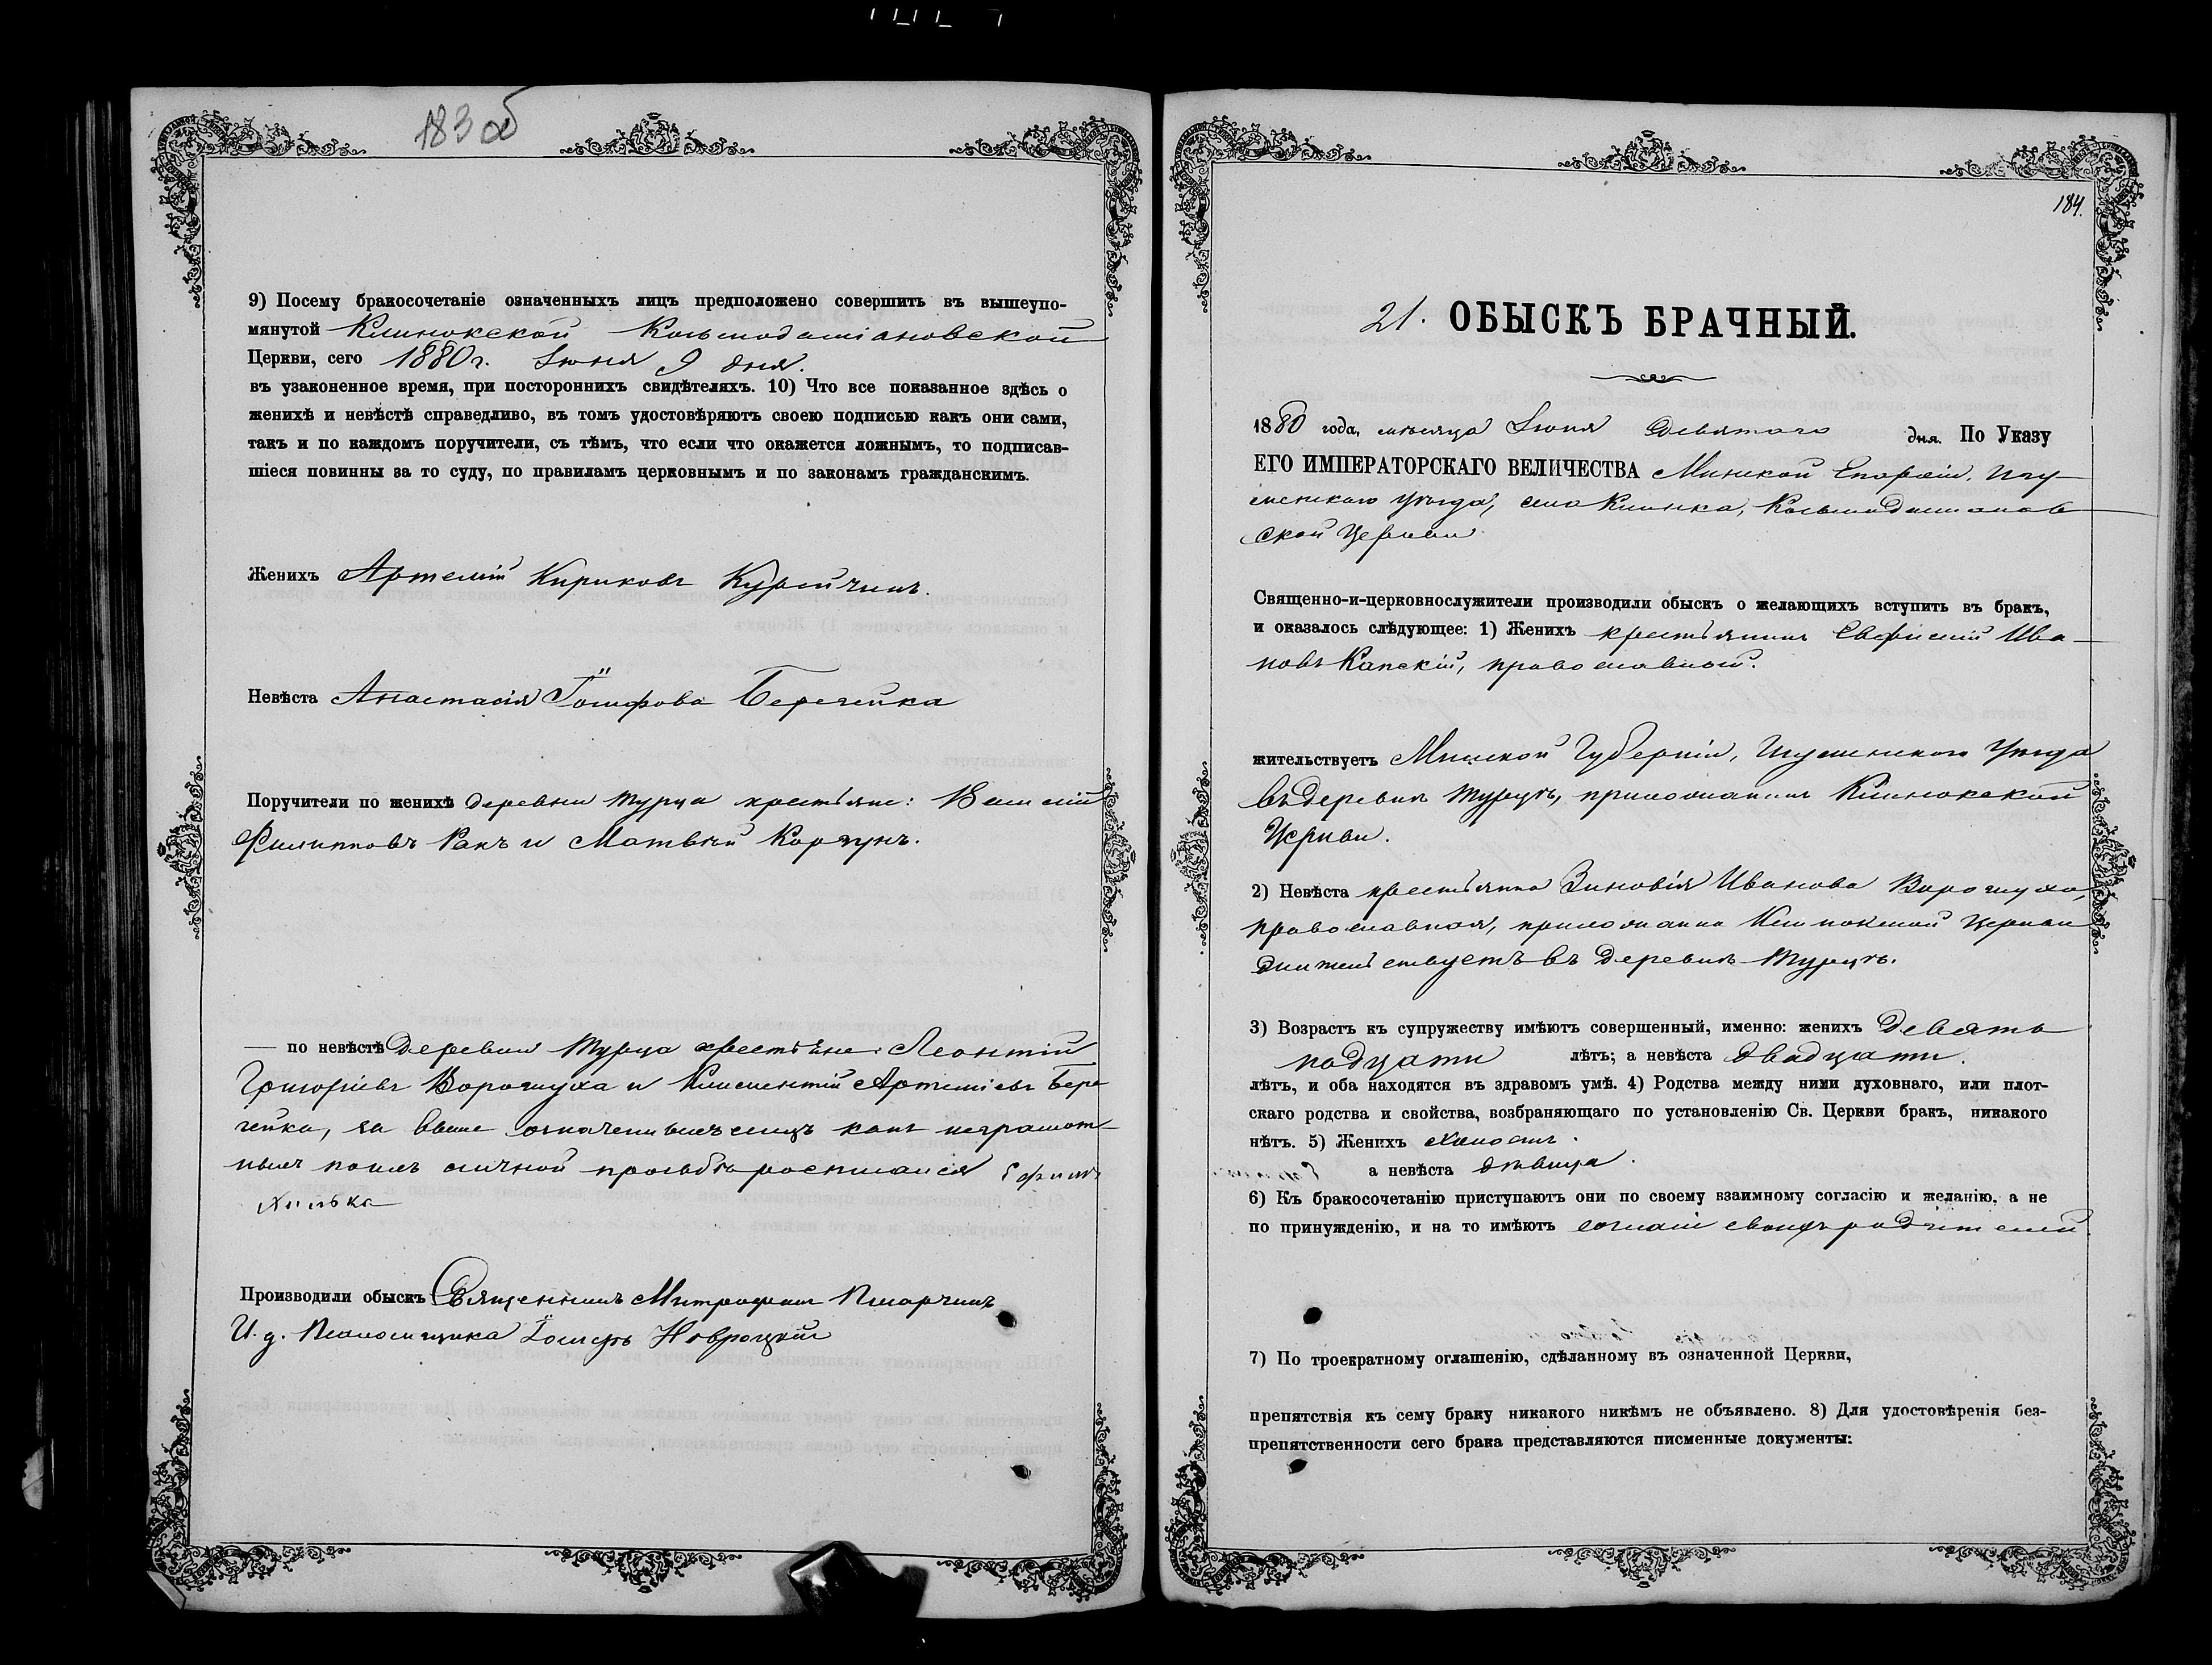 183 об
9) Посему бракосочетаніе означенныхъ лицъ предположено совершить въ вышеупо-
мянутой Клинокской Косьмодаміановской
Церкви, сего 1880 г. Іюня 9 дня.
въ узаконенное время, при постороннихъ свидѣтеляхъ. 10) Что все показанное здѣсь о
женихѣ и невѣстѣ справедливо, въ томъ удостовѣряютъ своею подписью какъ они сами,
такъ и по каждомъ поручители, съ тѣмъ, что если что окажется ложнымъ, то подписав-
шіеся повинны за то суду, по правиламъ церковнымъ и по законамъ гражданскимъ.
Женихъ Артемій Кириковъ
Невѣста Анастасія Іосифова Берегейка
Поручители по женихѣ деревни Турца крестьяне: Василій
Филипповъ Ракъ и Матвѣй Коргунъ.
— по невѣстѣ деревни Турца крестьяне: Леонтій
Григоріевъ Ворошуха и Климентій Артеміевъ Бере-
гейка, за выше означенныхъ лицъ какъ неграмот-
ныхъ по ихъ личной просьбѣ росписался Ефимъ
Хилько
Производили обыскъ Священникъ Митрофанъ
И. д. Псаломщика Іосифъ Новроцкій
184.
21. ОБЫСКЪ БРАЧНЫЙ.
1880 года, мѣсяца Іюня Девятаго дня. По Указу
ЕГО ИМПЕРАТОРСКАГО ВЕЛИЧЕСТВА Минской Епархіи, Игу-
менскаго уѣзда, села Клинка, Косьмодаміанов
ской Церкви
Священно-и-церковнослужители производили обыскъ о желающихъ вступить въ бракъ,
и оказалось слѣдующее: 1) Женихъ крестьянинъ Евфимій Ива-
новъ Капскій, православный.
жительствуетъ Минской Губерніи, Игуменскаго Уѣзда
въ деревнѣ Турцѣ, прихожанинъ Клинокской
Церкви.
2) Невѣста крестьянка Зиновія Иванова Ворошуха,
православная, прихожанка Клинокской Церкви
жительствуетъ въ деревнѣ Турцѣ.
3) Возрастъ къ супружеству имѣютъ совершенный, именно: женихъ девять
надцати лѣтъ; а невѣста двадцати.
лѣтъ, и оба находятся въ здравомъ умѣ. 4) Родства между ними духовнаго, или плот-
скаго родства и свойства, возбраняющаго по установленію Св. Церкви бракъ, никакого
нѣтъ. 5) Женихъ холостъ.
а невѣста дѣвица.
6) Къ бракосочетанію приступаютъ они по своему взаимному согласію и желанію, а не
по принужденію, и на то имѣютъ согласіе своихъ родителей.
7) По троекратному оглашенію, сдѣланному въ означенной Церкви,
препятствія къ сему браку никакого никѣмъ не объявлено. 8) Для удостовѣренія без-
препятственности сего брака представляются писменные документы: